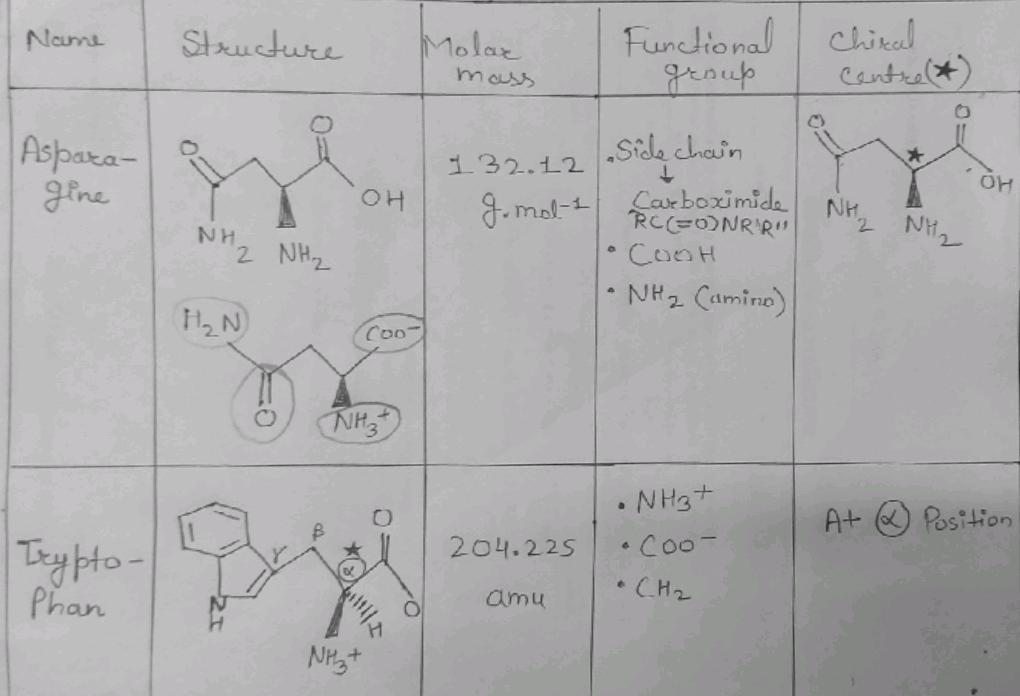 Name
Structure
Molar
mass
Functional
group
Chiral
centre(★)
Aspara-
gine
O
O
OH
NH2
NH2
H2N
COO-
O
NH3+
132.12
g.mol-1
.Side chain
↓
Carboximide
RC(=O)NR'R"
• COOH
• NH2 (amino)
O
O
★
OH
NH2
NH2
Trypto-
Phan
γ
β
★
α
O
O
N
H
H
NH3+
204.225
amu
• NH3+
• COO-
• CH2
At α Position